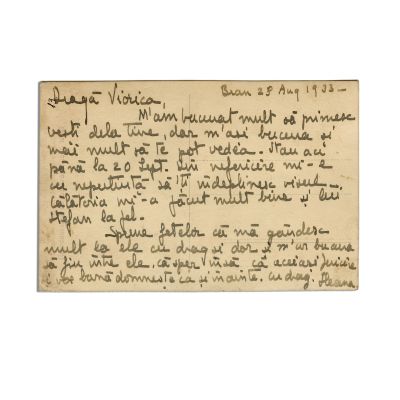 Bran 25 Aug 1933 –
Dragă Viorica,
M'am bucurat mult să primesc
vesti dela tine, dar m'asi bucura și
mai mult să te pot vedea. Stau aci
până la 20 Sept. din nefericire mi-e
cu neputință să 'ți îndeplinesc visul.
Călătoria mi-a făcut mult bine și lui
Stefan la fel.
Spune fetelor că mă gândesc
mult la ele cu drag si dor și m'ar bucura
să fiu între ele, că sper însă că aceiasi fericire
și voe bună domneste ca și înainte. cu drag. Ileana